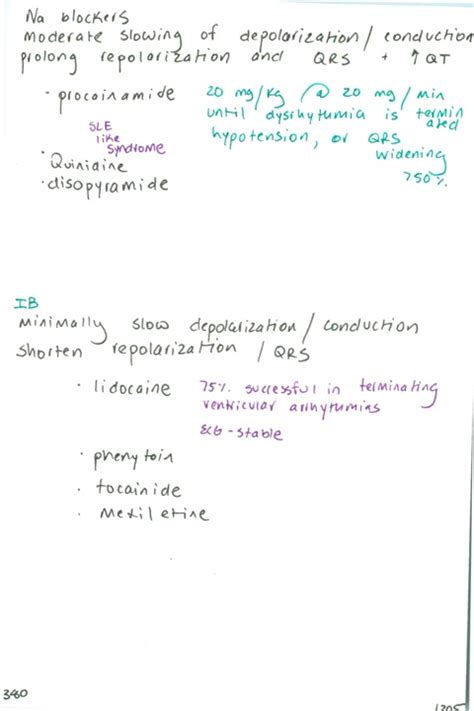 Na blockers
moderate slowing of depolarization / conduction
prolong repolarization and QRS + ↑ QT
· procainamide 20 mg/kg @ 20 mg/min
until dysrhytumia is termin
ated
SLE
like
syndrome
hypotension, or QRS
widening
>50%
· Quinidine
· disopyramide
IB
minimally slow depolarization / conduction
shorten repolarization / QRS
· lidocaine 75% successful in terminating
ventricular arrhytumias
ECG - stable
· phenytoin
· tocainide
· mexiletine
380
1205